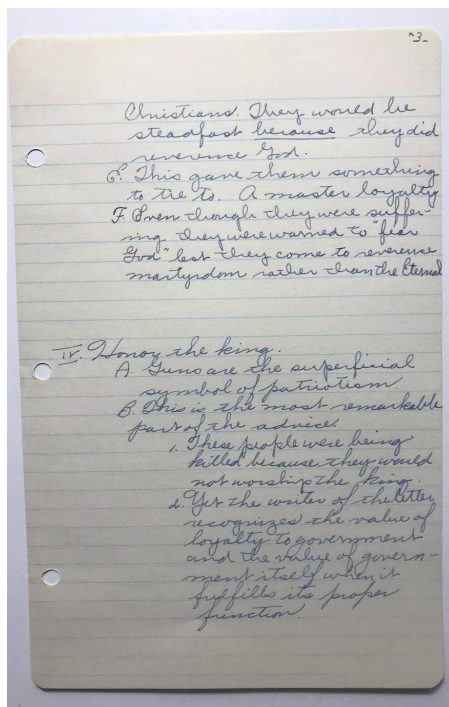 -3-
Christians. They would be
steadfast because they did
reverence God.
E. This gave them something
to tie to. A master loyalty
F. Even though they were suffer-
ing they were warned to "fear
God" lest they come to reverence
martyrdom rather than the Eternal
IV. Honor the king.
A. Guns are the superficial
symbol of patriotism.
B. This is the most remarkable
part of the advice.
1. These people were being
killed because they would
not worship the king.
2. Yet the writer of the letter
recognizes the value of
loyalty to government
and the value of govern-
ment itself when it
fulfills its proper
function.